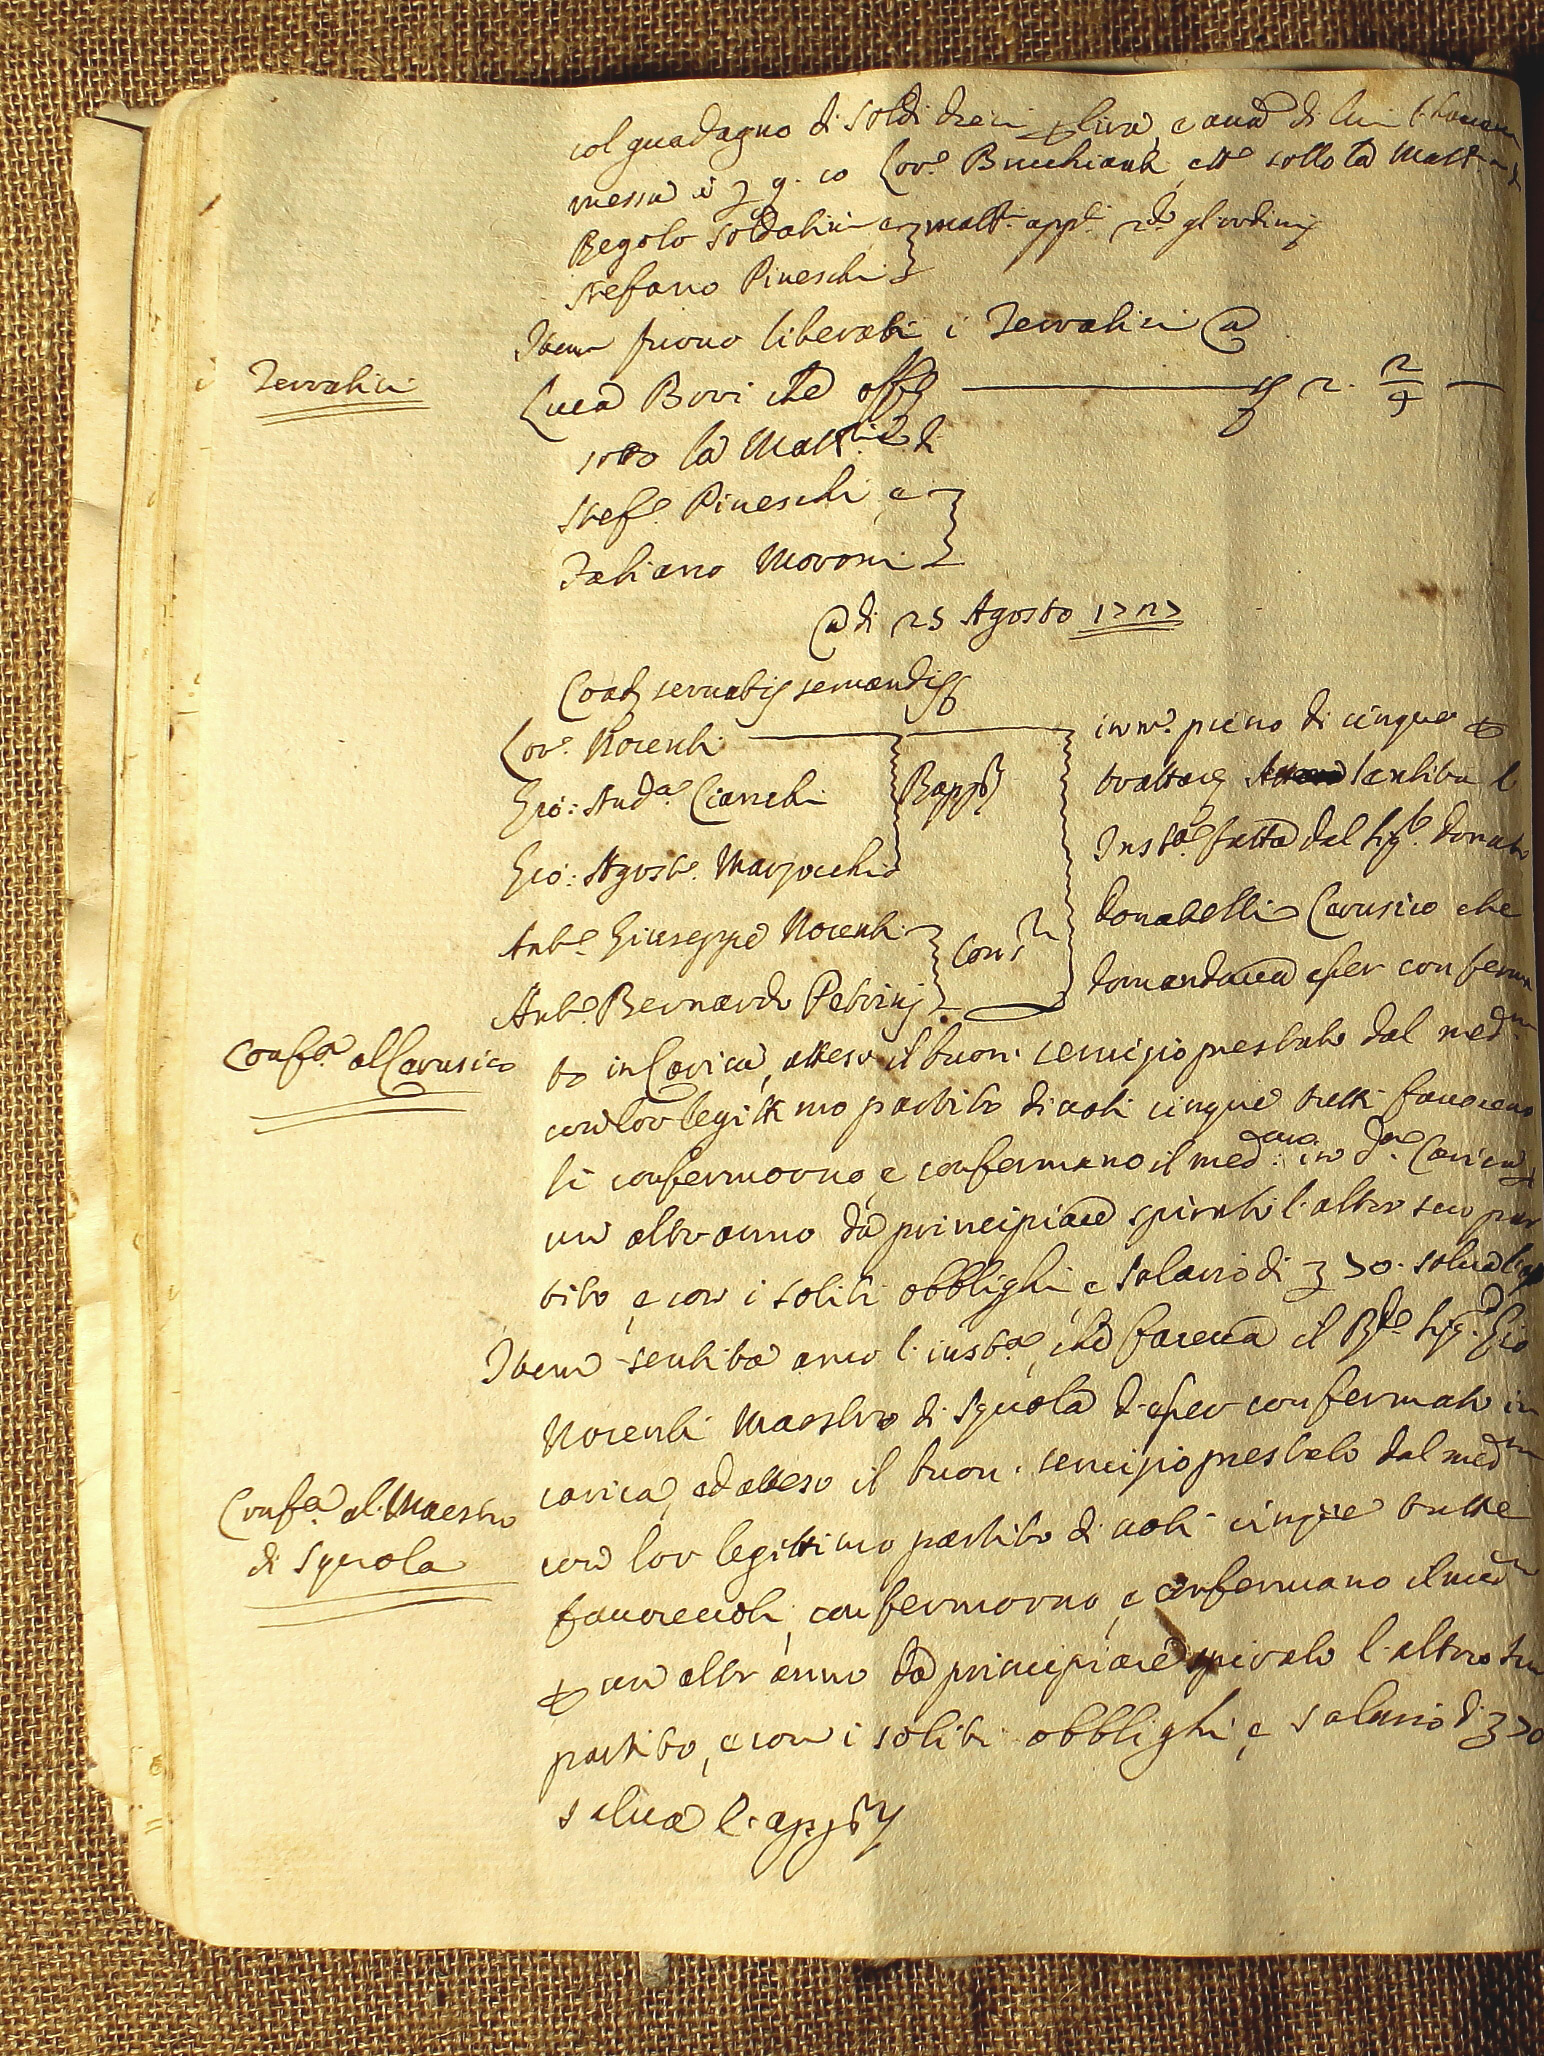 col guadagno di soldi dieci p lira, e ava di lui l'haveva
messa i 7 9. 10 Lor.º Bucchianti, etc sotto la Mall.
Regolo Soldatini e mall. app. 2do gl'ordini
Stefano Pineschi
Item furono liberati i Terratici @
Terratici
Luca Bovi che offe 2. 2/7
sotto la Mall. di
Stef.º Pineschi e
Fabiano Moroni
@ di 25 Agosto 1727
Coad servatis servandis
Lor.º Nocenti
Gio: And.ª Cianchi
Gio: Agost.º Marzocchi
Rapp.ti
Ant.º Giuseppe Nocenti
Ant.º Bernardo Petrini
Cons.ri
in n.º pieno di cinque p
trattare sentita l
Inst.ª fatta dal Sig.e Donato
Donatelli Cerusico che
domandava esser conferma
Conf.ª al Cerusico
to in Carica, atteso il buon servizio prestato dal med.mo
con lor legittimo partito di voti cinque tutti favorevo
li confermorno, e confermano il med.mo in d.ª Carica p
un altr anno da principiare spirato l'altro suo par
tito, e con i soliti obblighi, e salario di 70. salva l'app
Item sentita anco l'inst.ª, che faceva il R.do Sig. Gio
Nocenti Maestro di Squola d'esser confermato in
carica, ed atteso il buon servizio prestato dal med.mo
Conf.ª al Maestro
di Squola
con lor legittimo partito di voti cinque tutti
favorevoli, confermorno, e confermano il med.mo
p un altr anno da principiare spirato l'altro suo
partito, e con i soliti obblighi, e salario di 70
salva l'app.ne